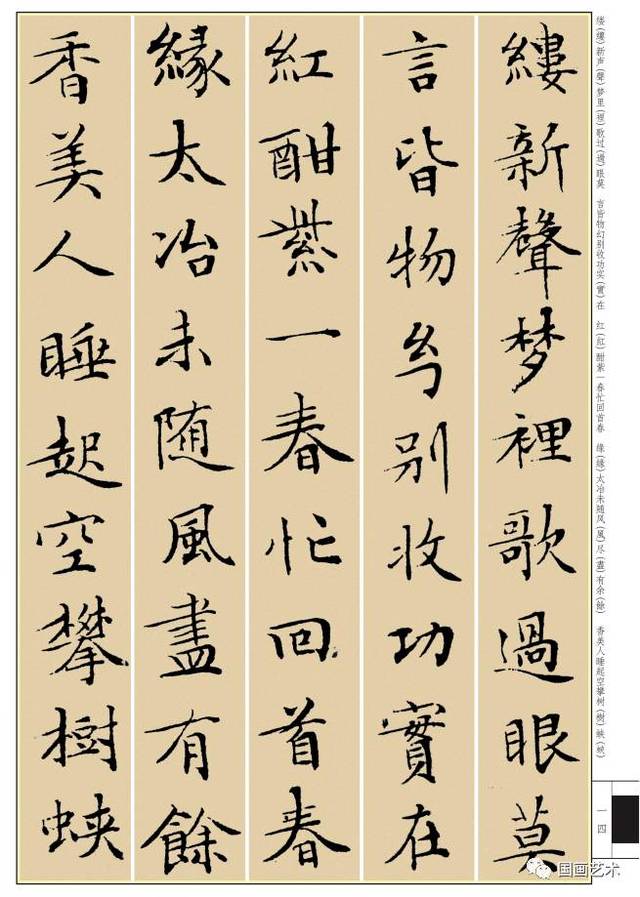 縷新聲梦裡歌過眼莫
言皆物幻别收功實在
紅酣紫一春忙回首春
緣太冶未随風盡有餘
香美人睡起空攀樹蛱
缕(縷)新声(聲)梦里(裡)歌过(過)眼莫 言皆物幻别收功实(實)在 红(紅)酣紫一春忙回首春 缘(緣)太冶未随风(風)尽(盡)有余(餘) 香美人睡起空攀树(樹)蛱(蛺)
一四
国画艺术